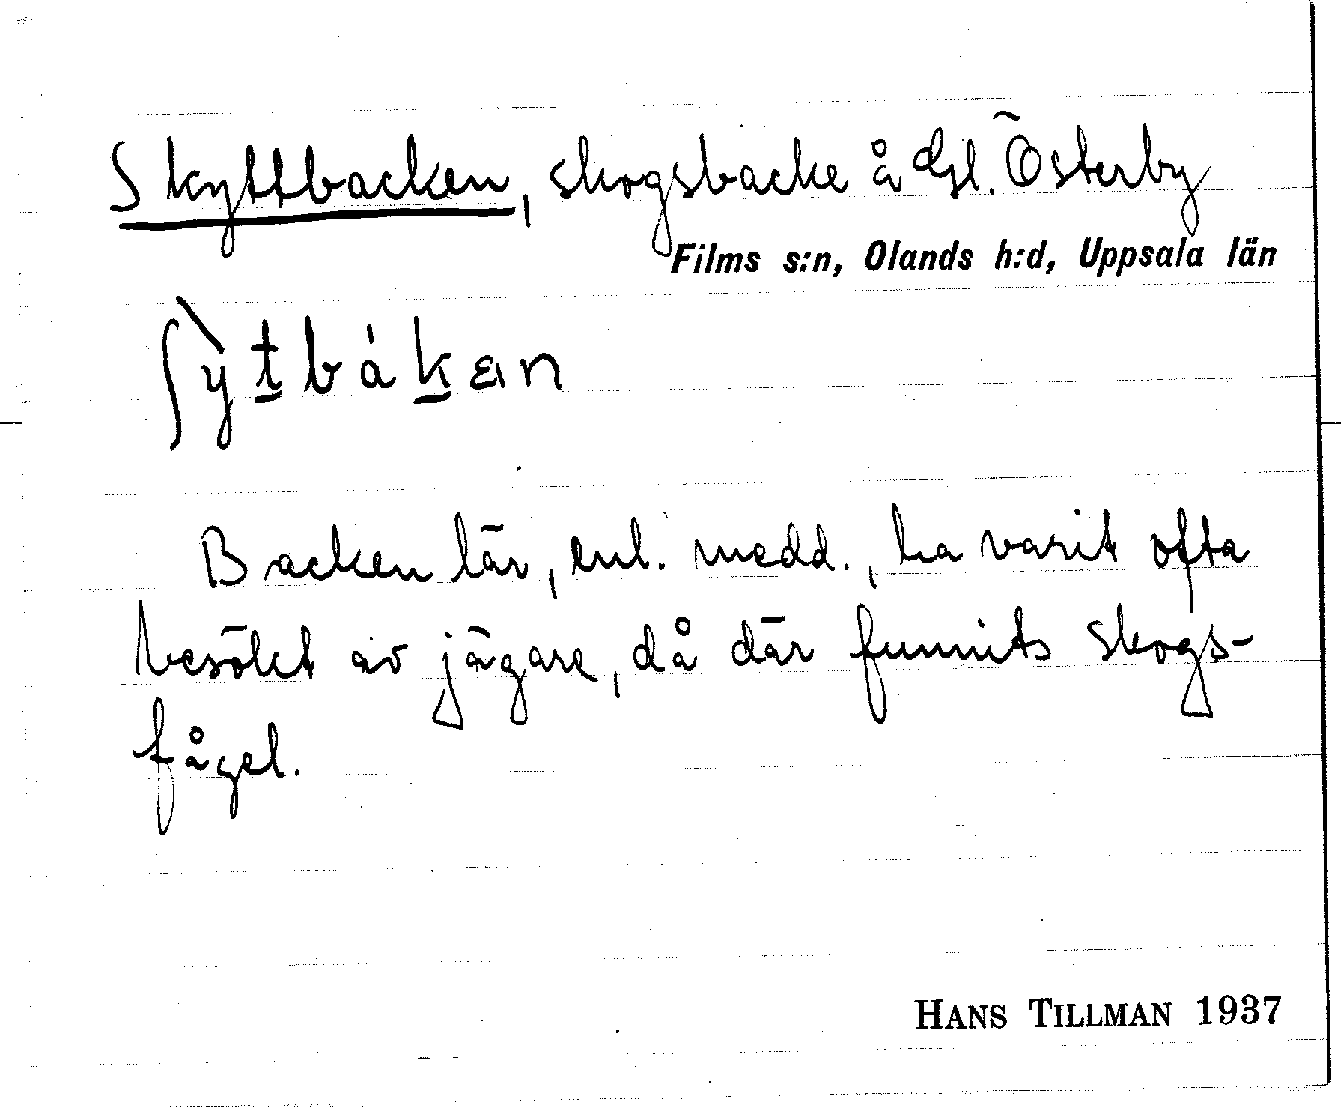 Skyttbacken, skogsbacke å Gl. Österby
Films s:n, Olands h:d, Uppsala län
ʃỳt̲bák̲an
Backen lär, enl. medd., ha varit ofta
besökt av jägare, då där funnits skogs-
fågel.
HANS TILLMAN 1937